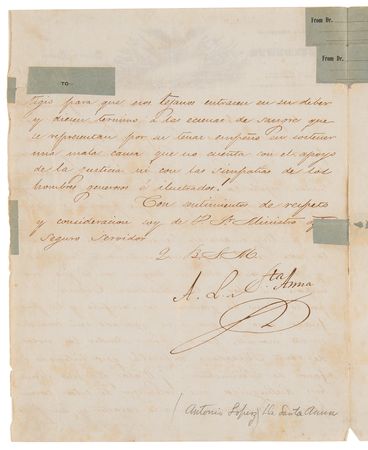 From Dr.
From Dr.
TO
tigio para que esos tejanos entrasen en su deber
y diesen termino á las escenas de sangre que
se representan por su tenaz empeño en sostener
una mala causa que no cuenta con el apoyo
de la justicia ni con las simpatias de los
hombres generosos é ilustrados.
Con sentimientos de respeto
y consideracion soy de V. S. Ministro
Seguro Servidor
Q. B. S. M.
A. L. de Sta Anna
(Antonio Lopez) de Santa Anna